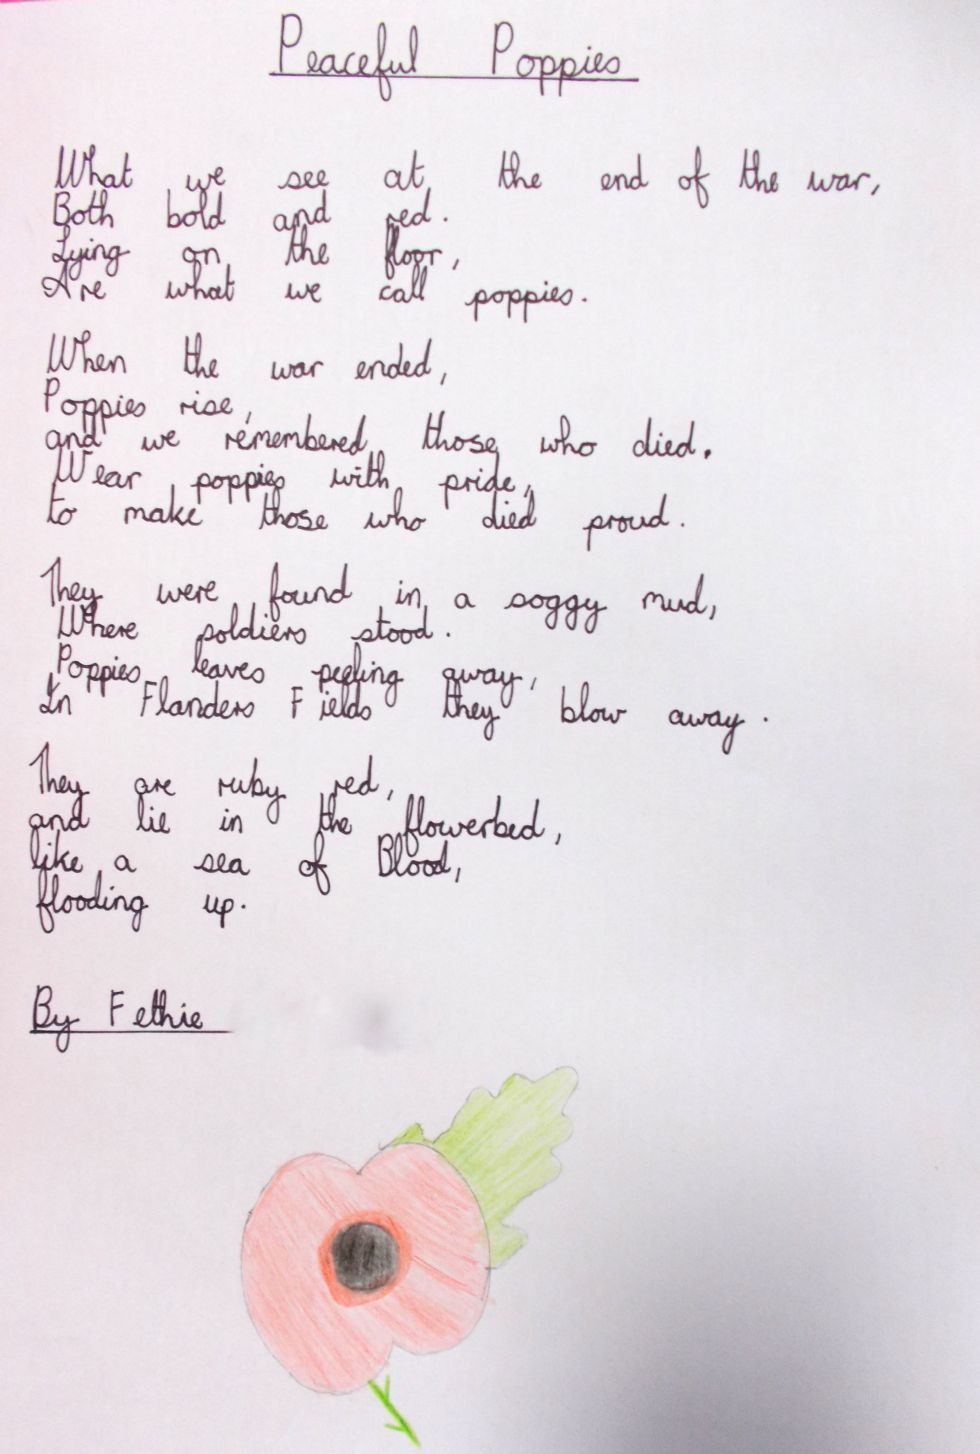 Peaceful Poppies
What we see at the end of the war,
Both bold and red.
Lying on the floor,
Are what we call poppies.
When the war ended,
Poppies rise,
and we remembered those who died.
Wear poppies with pride,
to make those who died proud.
They were found in a soggy mud,
Where soldiers stood.
Poppies leaves peeling away,
In Flanders Fields they blow away.
They are ruby red,
and lie in the flowerbed,
like a sea of Blood,
flooding up.
By Fethie